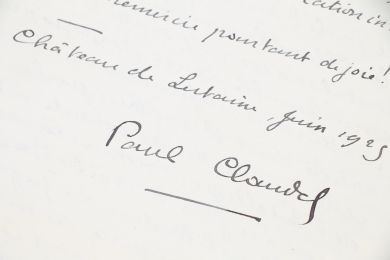 pourtant de joie!
Château de Lutaine, Juin 1925
Paul Claudel